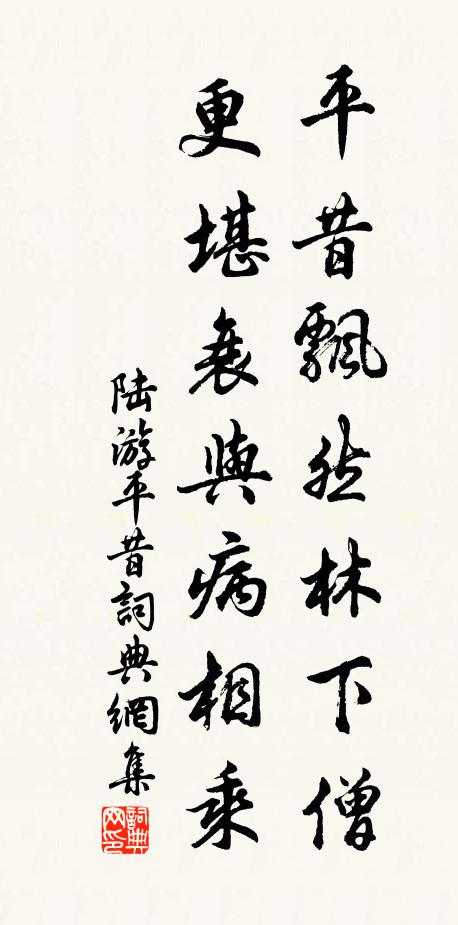 平昔飄然林下僧
更堪衰與病相乘
陸游平昔詞典網集
詞典网印